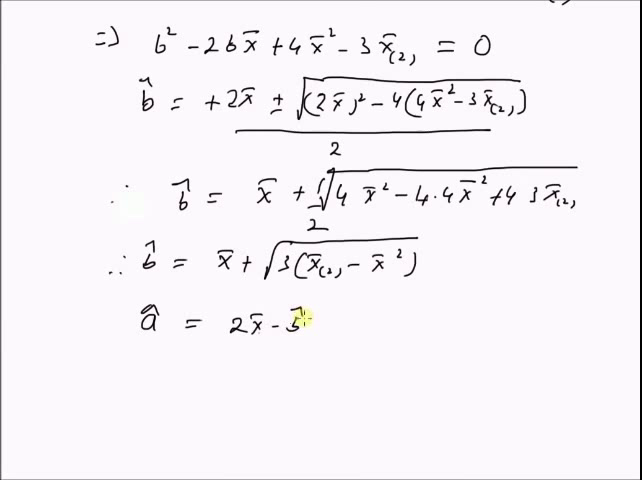 => b² - 2bx̄ + 4x̄² - 3x̄(2) = 0
b̂ = +2x̄ ± √((2x̄)² - 4(4x̄² - 3x̄(2))) / 2
∴ b̂ = x̄ + 1/2 √(4x̄² - 4.4x̄² + 4 3x̄(2)
∴ b̂ = x̄ + √(3(x̄(2) - x̄²))
â = 2x̄ - b̂